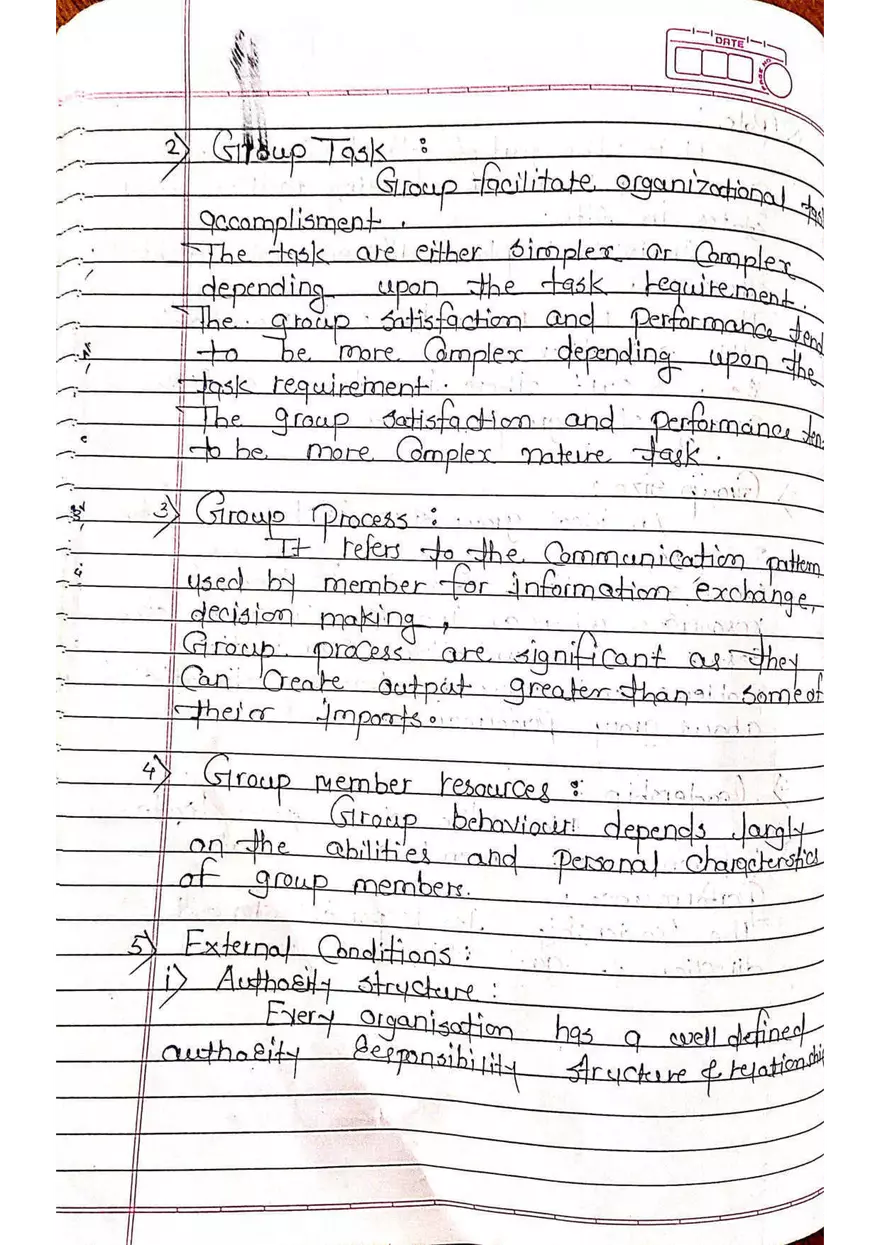 DATE
PAGE NO
2) Group Task :
Group facilitate organizational task
accomplisment.
The task are either simplex or Complex
depending upon the task requirement.
The group satisfaction and performance tend
to be more Complex depending upon the
task requirement.
The group satisfaction and performance ten
to be more Complex nature task.
3) Group Process :
It refers to the Communication pattern
used by member for information exchange,
decision making,
Group process are significant as they
Can Create output greater than some of
their imports.
4) Group member resources :
Group behaviour depends largly
on the abilities and personal Characterstics
of group members.
5) External Conditions :
i) Authority structure :
Every organisation has a well defined
authority Responsibility structure & relationship